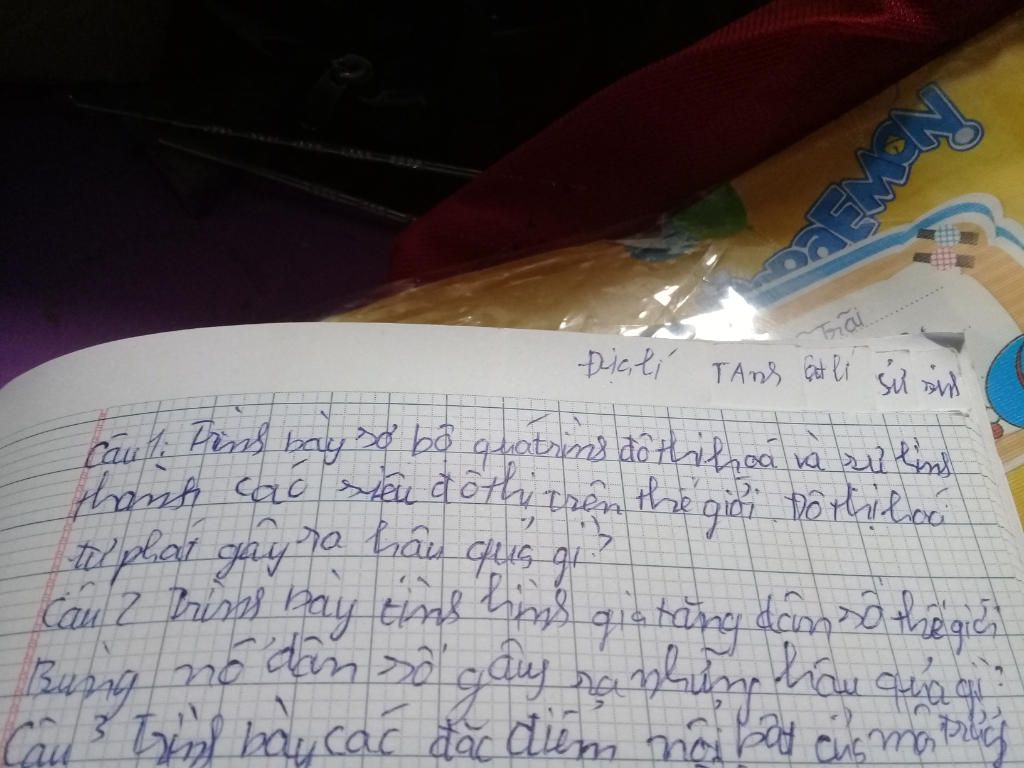 DORAEMON
Trãi
Địa lí TAnh Vật lí Sử
Câu 1: Trình bày sơ bộ quá trình đô thị hoá và sự hình
thành các siêu đô thị trên thế giới. Đô thị hoá
tự phát gây ra hậu quả gì?
Câu 2 Trình bày tình hình gia tăng dân số thế giới
Bùng nổ dân số gây ra những hậu quả gì?
Câu 3 Trình bày các đặc điểm nổi bật của môi trường